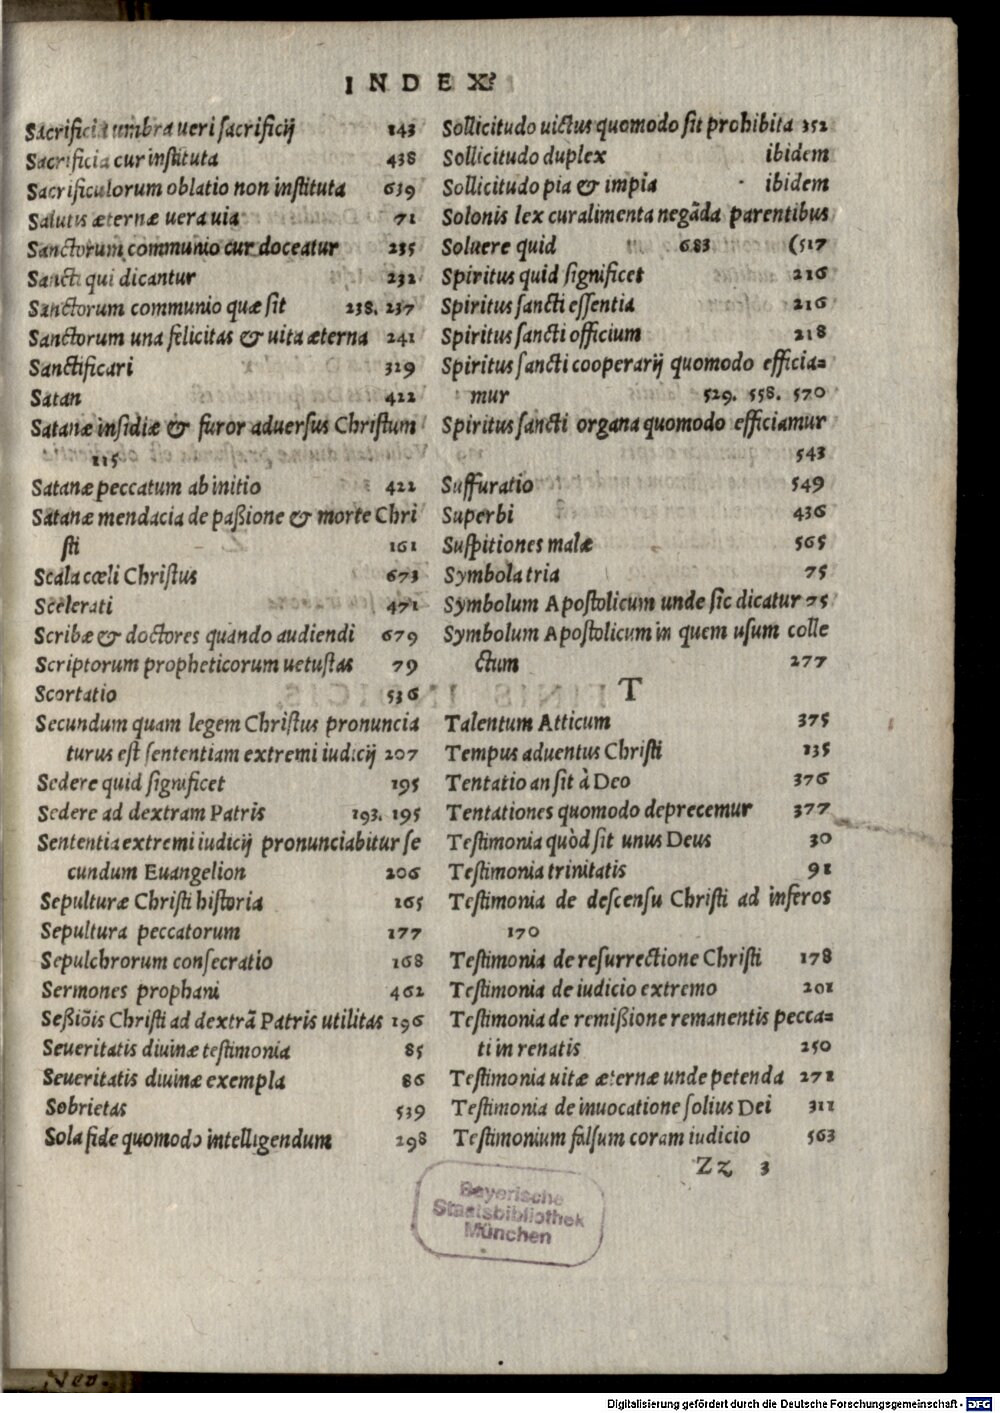 INDEX
Sacrificia umbra ueri sacrificij 143
Sacrificia cur instituta 438
Sacrificulorum oblatio non instituta 639
Salutis æternæ uera uia 71
Sanctorum communio cur doceatur 235
Sancti qui dicantur 232
Sanctorum communio quæ sit 238. 237
Sanctorum una felicitas & uita æterna 241
Sanctificari 329
Satan 422
Satanæ insidiæ & furor aduersus Christum
115
Satanæ peccatum ab initio 422
Satanæ mendacia de paßione & morte Chri
sti 161
Scala cœli Christus 673
Scelerati 471
Scribæ & doctores quando audiendi 679
Scriptorum propheticorum uetustas 79
Scortatio 536
Secundum quam legem Christus pronuncia
turus est sententiam extremi iudicij 207
Sedere quid significet 195
Sedere ad dextram Patris 193. 195
Sententia extremi iudicij pronunciabitur se
cundum Euangelion 206
Sepulturæ Christi historia 165
Sepultura peccatorum 177
Sepulchrorum consecratio 168
Sermones prophani 462
Seßiõis Christi ad dextrã Patris utilitas 196
Seueritatis diuinæ testimonia 85
Seueritatis diuinæ exempla 86
Sobrietas 539
Sola fide quomodo intelligendum 298
Sollicitudo uictus quomodo sit prohibita 352
Sollicitudo duplex ibidem
Sollicitudo pia & impia ibidem
Solonis lex cur alimenta negãda parentibus
Soluere quid 683 (517
Spiritus quid significet 216
Spiritus sancti essentia 216
Spiritus sancti officium 218
Spiritus sancti cooperarij quomodo efficia=
mur 529. 558. 570
Spiritus sancti organa quomodo efficiamur
543
Suffuratio 549
Superbi 436
Suspitiones malæ 565
Symbola tria 75
Symbolum Apostolicum unde sic dicatur 75
Symbolum Apostolicum in quem usum colle
ctum 277
T
Talentum Atticum 375
Tempus aduentus Christi 135
Tentatio an sit à Deo 376
Tentationes quomodo deprecemur 377
Testimonia quòd sit unus Deus 30
Testimonia trinitatis 91
Testimonia de descensu Christi ad inferos
170
Testimonia de resurrectione Christi 178
Testimonia de iudicio extremo 201
Testimonia de remißione remanentis pecca=
ti in renatis 250
Testimonia uitæ æternæ unde petenda 271
Testimonia de inuocatione solius Dei 311
Testimonium falsum coram iudicio 563
Zz 3
Bayerische
Staatsbibliothek
München
Digitalisierung gefördert durch die Deutsche Forschungsgemeinschaft - DFG